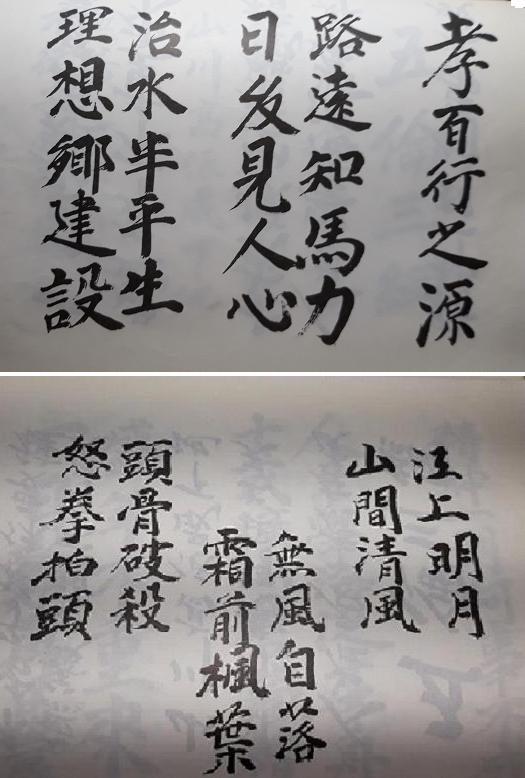 孝百行之源
路遠知馬力
日久見人心
治水半平生
理想鄉建設
江上明月
山間清風
無風自落
霜前楓葉
頭骨破殺
怒拳拍頭